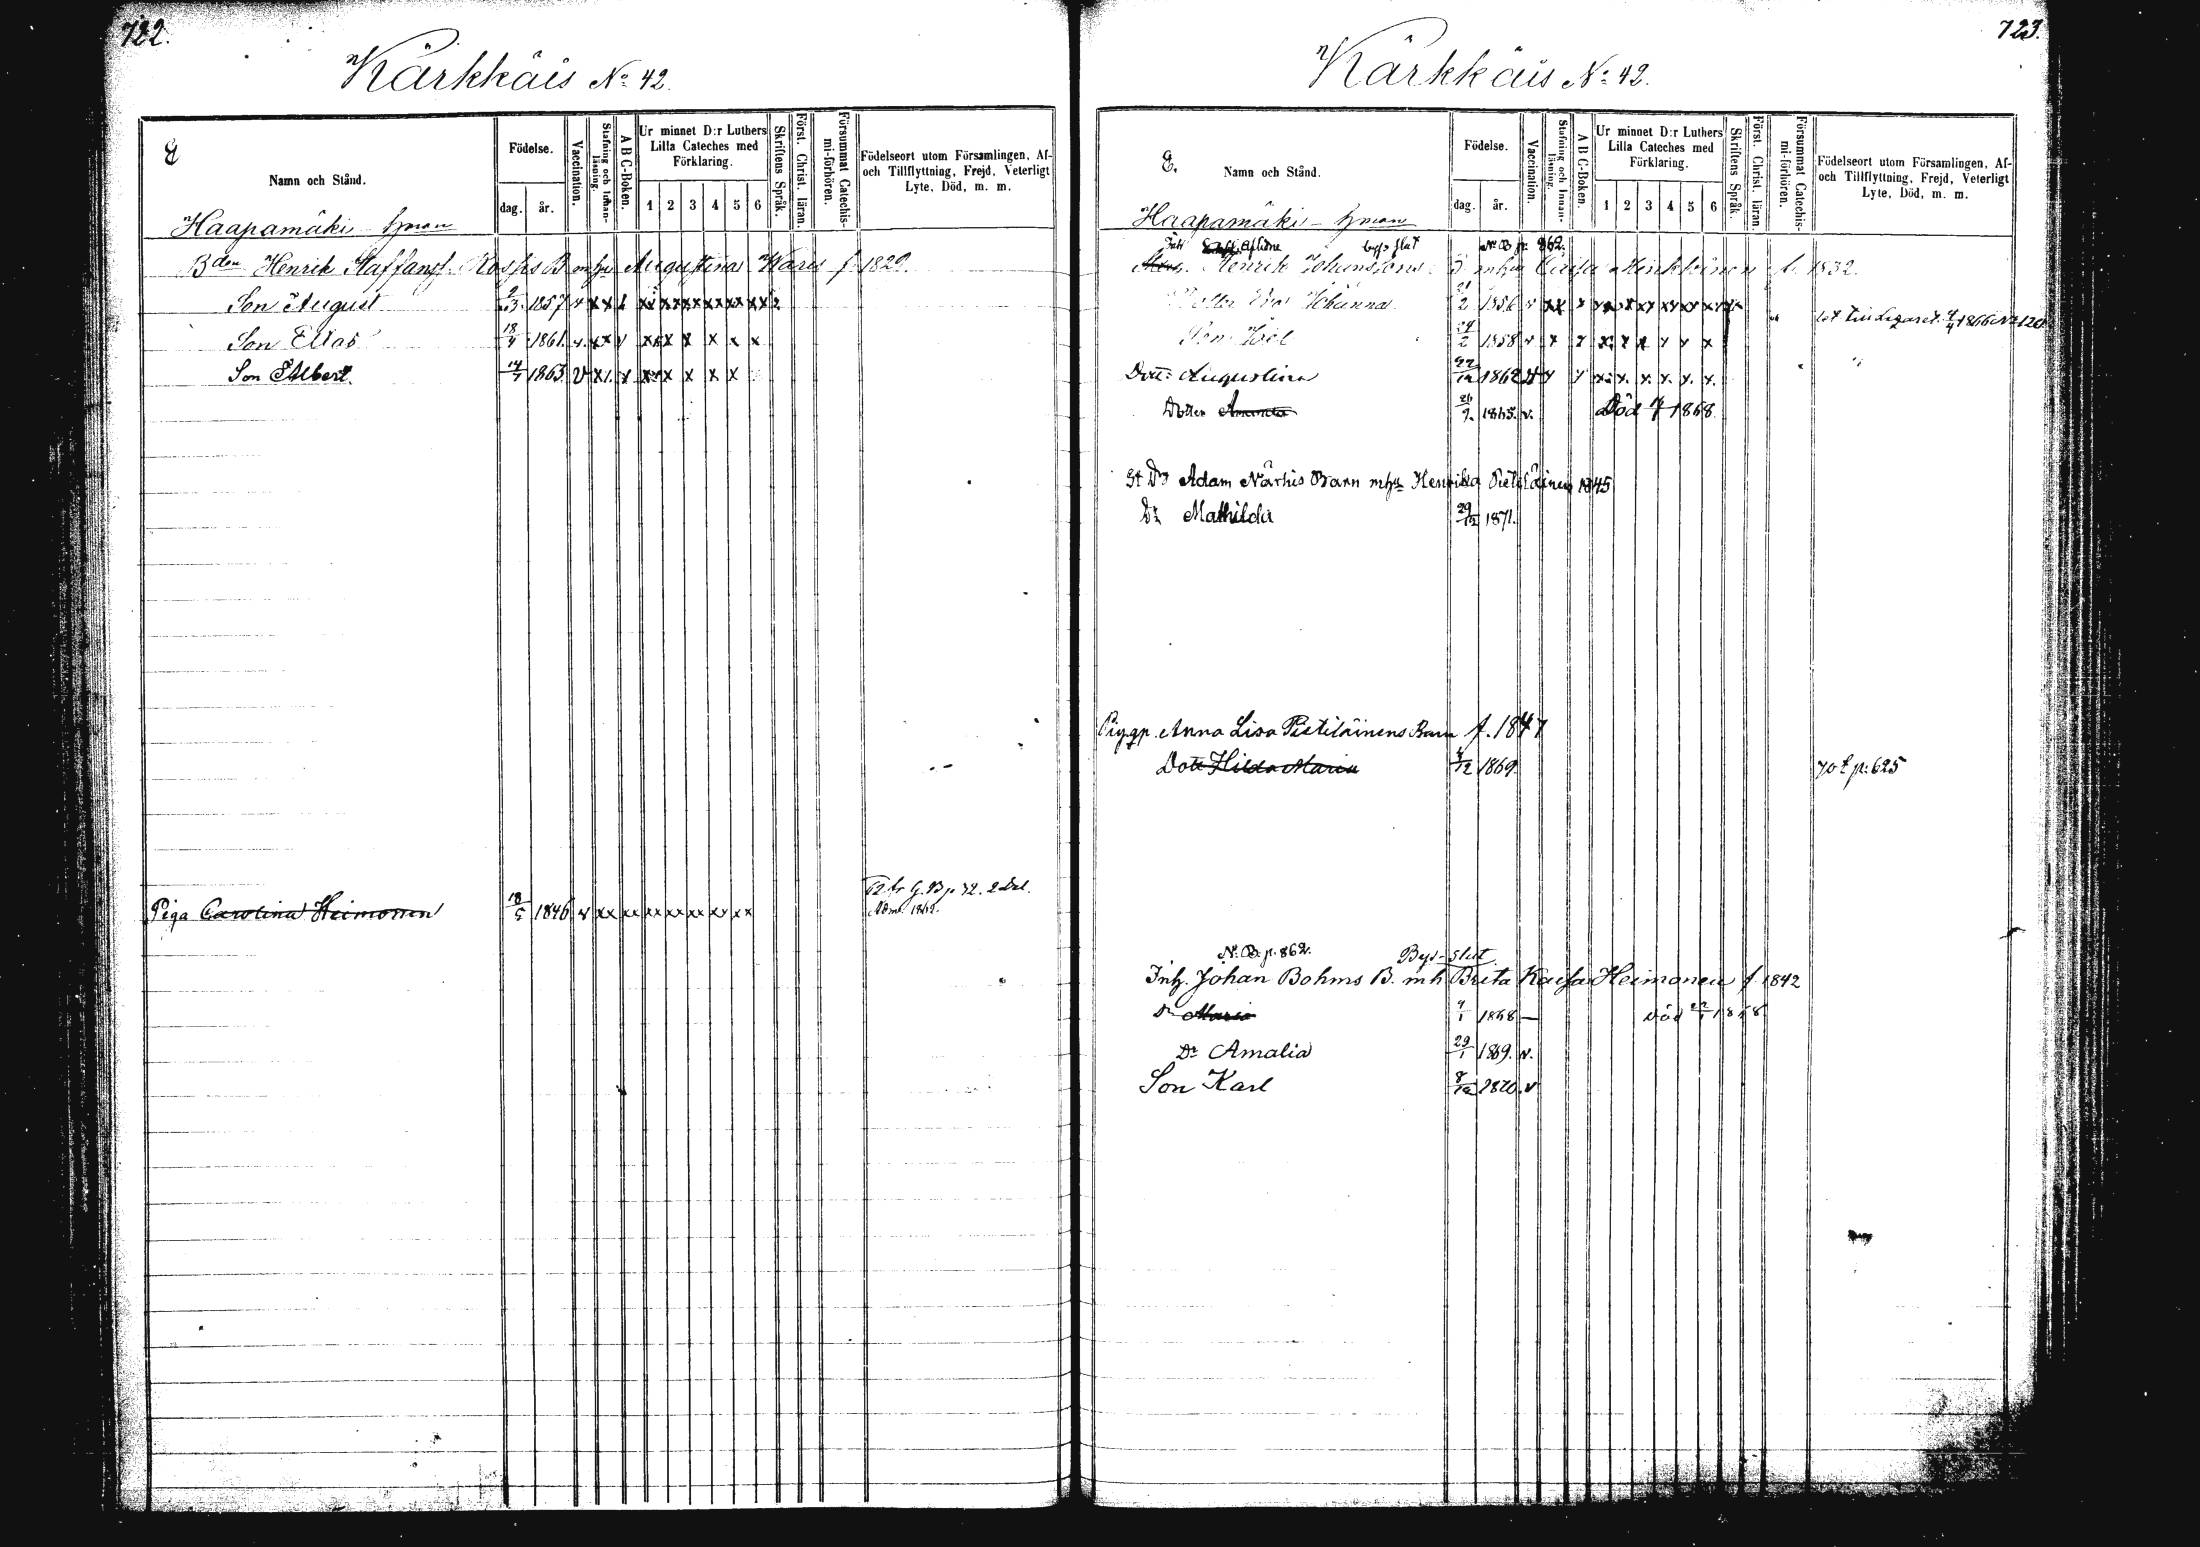 722.
Kärkkäis No 42.
E
Namn och Stånd.
Födelse.
dag. år.
Vaccination.
Stafning och Innan-läsning.
A B C-Boken.
Ur minnet D:r Luthers
Lilla Cateches med
Förklaring.
1 2 3 4 5 6
Skriftens Språk.
Först. Christ. läran.
Försummat Catechis-
mi-förhören.
Födelseort utom Församlingen, Af-
och Tillflyttning, Frejd, Veterligt
Lyte, Död, m. m.
Haapamäki
Bden Henrik Staffans. Rossis B mhu Augustina Wares f 1829.
Son August 9/3 1857 v xx x xx xx xx xx xx xx
Son Elias 18/4 1861. v xx v xx x x x x x
Son Albert. 14/7 1863. v x x x x x x
Piga Carolina Heimonen 18/5 1846 v xx xx xx xx xx xx xx
62 fr G. B p 72. 2 Del.
723.
Kärkkäis No 42.
E.
Namn och Stånd.
Födelse.
dag. år.
Vaccination.
Stafning och Innan-läsning.
A B C-Boken.
Ur minnet D:r Luthers
Lilla Cateches med
Förklaring.
1 2 3 4 5 6
Skriftens Språk.
Först. Christ. läran.
Försummat Catechis-
mi-förhören.
Födelseort utom Församlingen, Af-
och Tillflyttning, Frejd, Veterligt
Lyte, Död, m. m.
Haapamäki
aflidne bys slut N. B. p. 862.
Henrik Johanssons B mhu Caisa Minkkinen f. 1832.
Johanna 21/2 1856 v xx x
Son Joel 24/2 1858 v x x x x x x x x
Dott: Augustina 22/12 1862 x x x. x. x. x. x. x.
Dotter Amanda 26/9. 1865. v. Död 1868.
Adam Närhis Barn mhu Henrika Pietiläinen 1845
Dr Mathilda 29/12 1871.
Anna Lisa Pietiläinens Barn f. 1847
Dott Hilda Maria 4/12 1869. 70 t p: 625
N. B. p. 862. Bys-slut
Inh. Johan Bohms B. mh Brita Kaisa Heimonen f. 1842
Dr Maria 4/1 1868 — Död 22/1 1868
Dr Amalia 29/1 1869. v.
Son Karl 8/12 1870. v